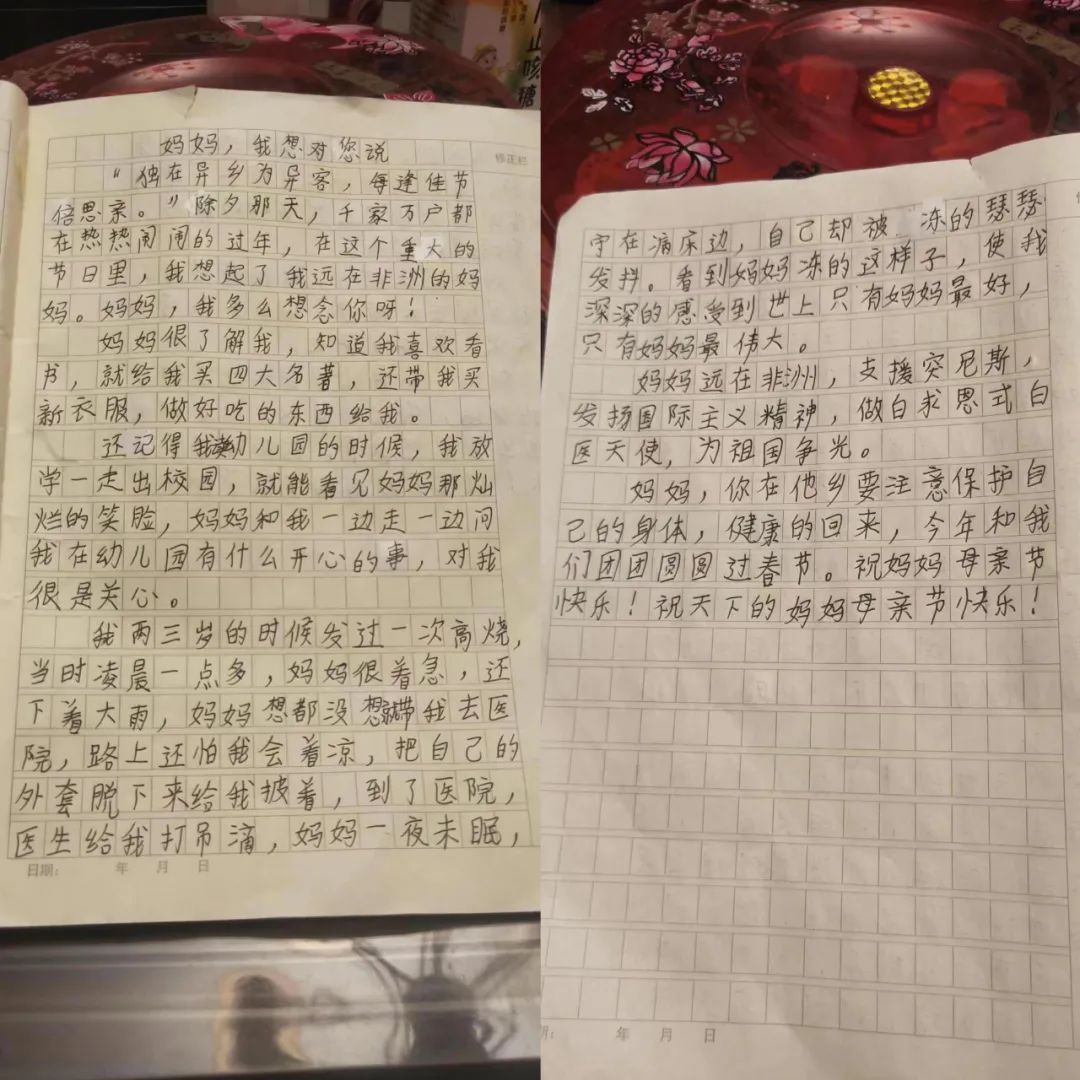 妈妈，我想对您说
修正栏
"独在异乡为异客，每逢佳节
倍思亲。"除夕那天，千家万户都
在热热闹闹的过年，在这个重大的
节日里，我想起了我远在非洲的妈
妈。妈妈，我多么想念你呀！
妈妈很了解我，知道我喜欢看
书，就给我买四大名著，还带我买
新衣服，做好吃的东西给我。
还记得我读幼儿园的时候，我放
学一走出校园，就能看见妈妈那灿
烂的笑脸，妈妈和我一边走一边问
我在幼儿园有什么开心的事，对我
很是关心。
我两三岁的时候发过一次高烧，
当时凌晨一点多，妈妈很着急，还
下着大雨，妈妈想都没想就带我去医
院，路上还怕我会着凉，把自己的
外套脱下来给我披着，到了医院，
医生给我打吊滴，妈妈一夜未眠，
日期： 年 月 日
止咳糖
守在病床边，自己却被冻的瑟瑟
发抖。看到妈妈冻的这样子，使我
深深的感受到世上只有妈妈最好，
只有妈妈最伟大。
妈妈远在非洲，支援突尼斯，
发扬国际主义精神，做白求恩式白
医天使，为祖国争光。
妈妈，你在他乡要注意保护自
己的身体，健康的回来，今年和我
们团团圆圆过春节。祝妈妈母亲节
快乐！祝天下的妈妈母亲节快乐！
期： 年 月 日